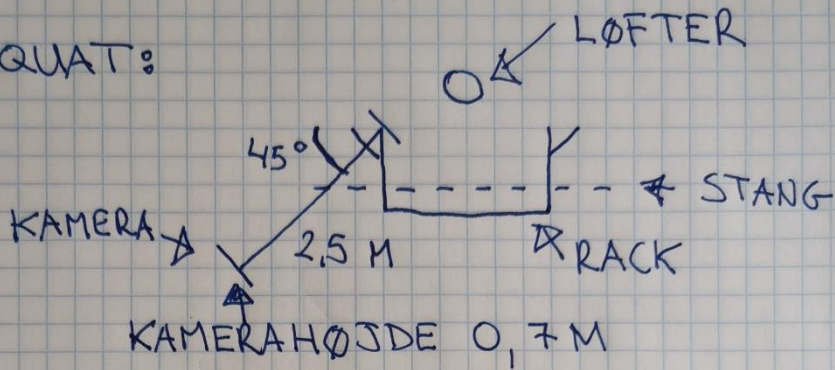 LØFTER
QUAT:
45°
STANG
KAMERA
2,5 M
RACK
KAMERAHØJDE 0,7 M